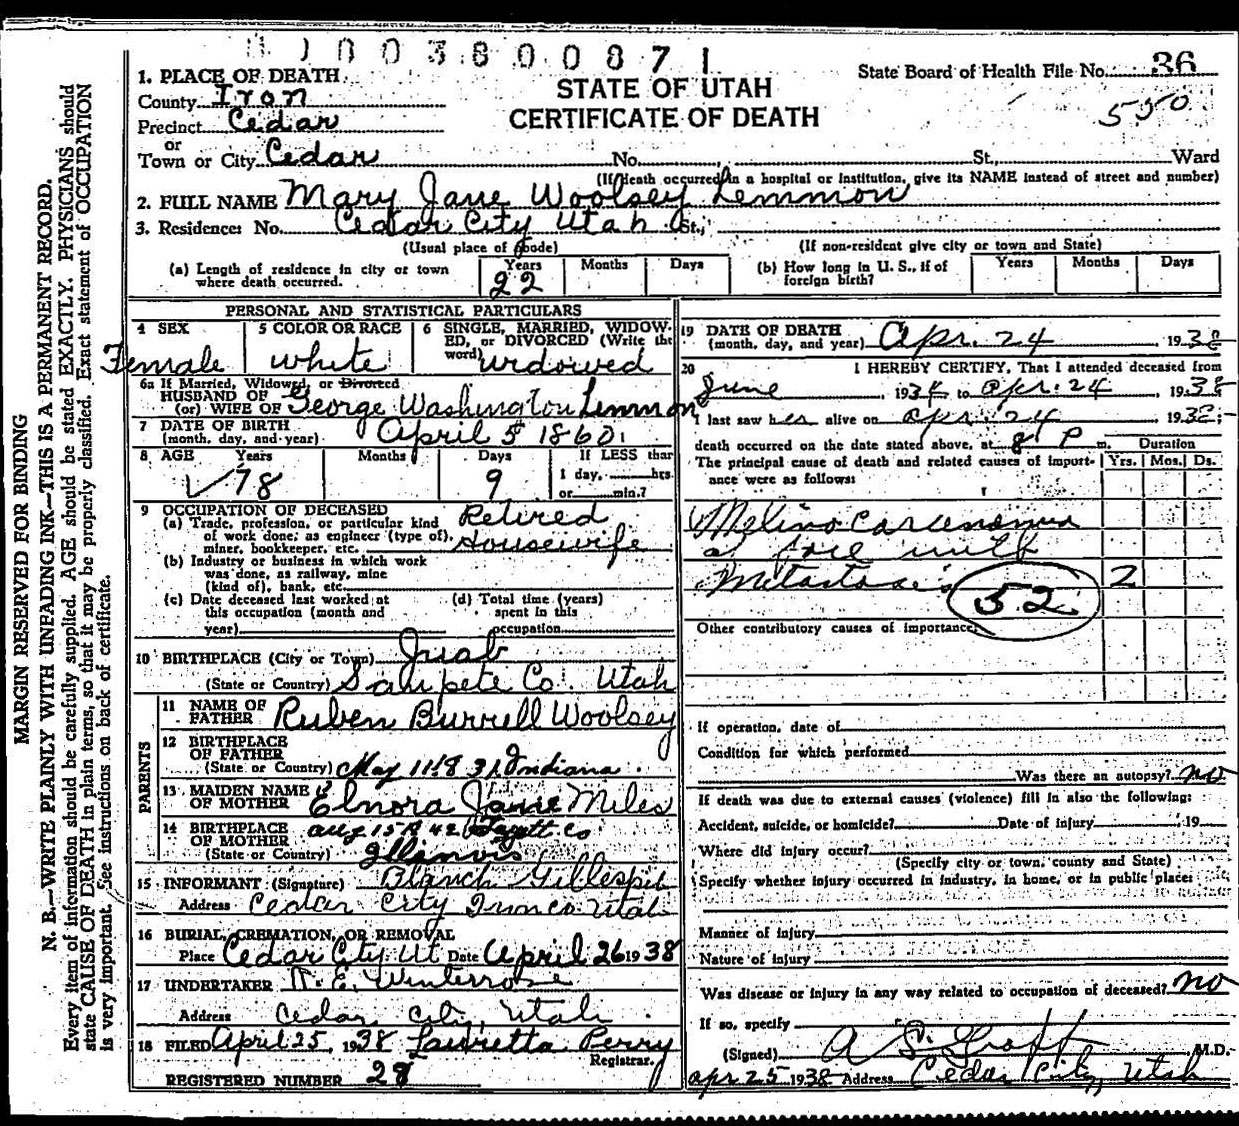 003800871
STATE OF UTAH
CERTIFICATE OF DEATH
State Board of Health File No. 36
550
MARGIN RESERVED FOR BINDING
N. B.—WRITE PLAINLY WITH UNFADING INK—THIS IS A PERMANENT RECORD.
Every item of information should be carefully supplied. AGE should be stated EXACTLY. PHYSICIANS should
state CAUSE OF DEATH in plain terms, so that it may be properly classified. Exact statement of OCCUPATION
is very important. See instructions on back of certificate.
1. PLACE OF DEATH
County Iron
Precinct Cedar
or
Town or City Cedar No. St., Ward
(If death occurred in a hospital or institution, give its NAME instead of street and number)
2. FULL NAME Mary Jane Woolsey Lemmon
3. Residence: No. Cedar City Utah St.,
(Usual place of abode) (If non-resident give city or town and State)
(a) Length of residence in city or town where death occurred. Years 22 Months Days
(b) How long in U. S., if of foreign birth? Years Months Days
PERSONAL AND STATISTICAL PARTICULARS
4 SEX Female
5 COLOR OR RACE white
6 SINGLE, MARRIED, WIDOWED, or DIVORCED (Write the word) widowed
6a If Married, Widowed, or Divorced
HUSBAND OF
(or) WIFE OF George Washington Lemmon
7 DATE OF BIRTH
(month, day, and year) April 5 1860
8 AGE Years 78 Months Days 9 If LESS than
1 day, hrs.
or min.?
9 OCCUPATION OF DECEASED
(a) Trade, profession, or particular kind of work done, as engineer (type of), miner, bookkeeper, etc. Retired Housewife
(b) Industry or business in which work was done, as railway, mine (kind of), bank, etc.
(c) Date deceased last worked at this occupation (month and year)
(d) Total time (years) spent in this occupation
10 BIRTHPLACE (City or Town) Juab
(State or Country) Sanpete Co. Utah
PARENTS
11 NAME OF FATHER Ruben Burrell Woolsey
12 BIRTHPLACE OF FATHER
(State or Country) May 11 1831 Indiana
13 MAIDEN NAME OF MOTHER Elnora Jane Miles
14 BIRTHPLACE OF MOTHER Aug 15 1842 Co
(State or Country) Illinois
15 INFORMANT (Signature) Blanch Gillespie
Address Cedar City Iron Co. Utah
16 BURIAL, CREMATION, OR REMOVAL
Place Cedar City Ut Date April 26 1938
17 UNDERTAKER Winterrose
Address Cedar City, Utah
18 FILED April 25, 1938 Lauretta Perry
Registrar.
REGISTERED NUMBER 28
19 DATE OF DEATH
(month, day, and year) Apr. 24, 1938
20 I HEREBY CERTIFY, That I attended deceased from
June, 1934 to Apr. 24, 1938
I last saw her alive on Apr. 24 1938;
death occurred on the date stated above, at 8 P m. Duration
The principal cause of death and related causes of importance were as follows: Yrs. Mos. Ds.
Carcenoma
of face with
Metastasis 2
52
Other contributory causes of importance:
If operation, date of
Condition for which performed
Was there an autopsy? no
If death was due to external causes (violence) fill in also the following:
Accident, suicide, or homicide? Date of injury , 19
Where did injury occur?
(Specify city or town, county and State)
Specify whether injury occurred in industry, in home, or in public place:
Manner of injury
Nature of injury
Was disease or injury in any way related to occupation of deceased? no
If so, specify
(Signed) M.D.
Apr 25 1938 Address Cedar City, Utah